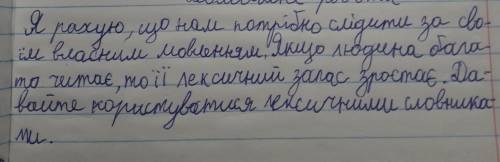 Я рахую, що нам потрібно слідити за сво-
їм власним мовленням. Якщо людина бага-
то читає, то її лексичний запас зростає. Да-
вайте користуватися лексичними словника-
ми.